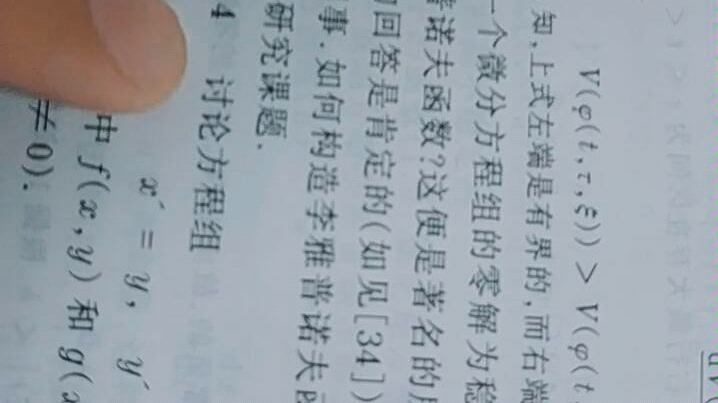 V(φ(t,τ,ξ)) > V(φ(t
知,上式左端是有界的,而右端
个微分方程组的零解为稳
诺夫函数?这便是著名的
回答是肯定的(如见[34])
事.如何构造李雅普诺夫函
研究课题.
4 讨论方程组
x′ = y, y′
中 f(x,y) 和 g(x
≠ 0).